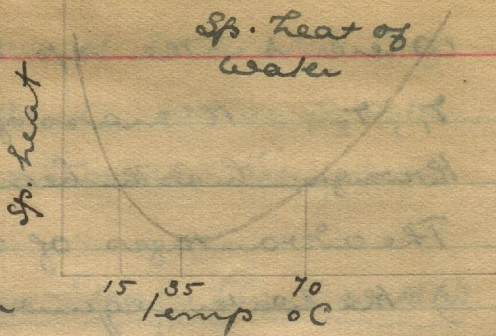 Sp. heat of
water
Sp. heat
15 35 70
Temp °C